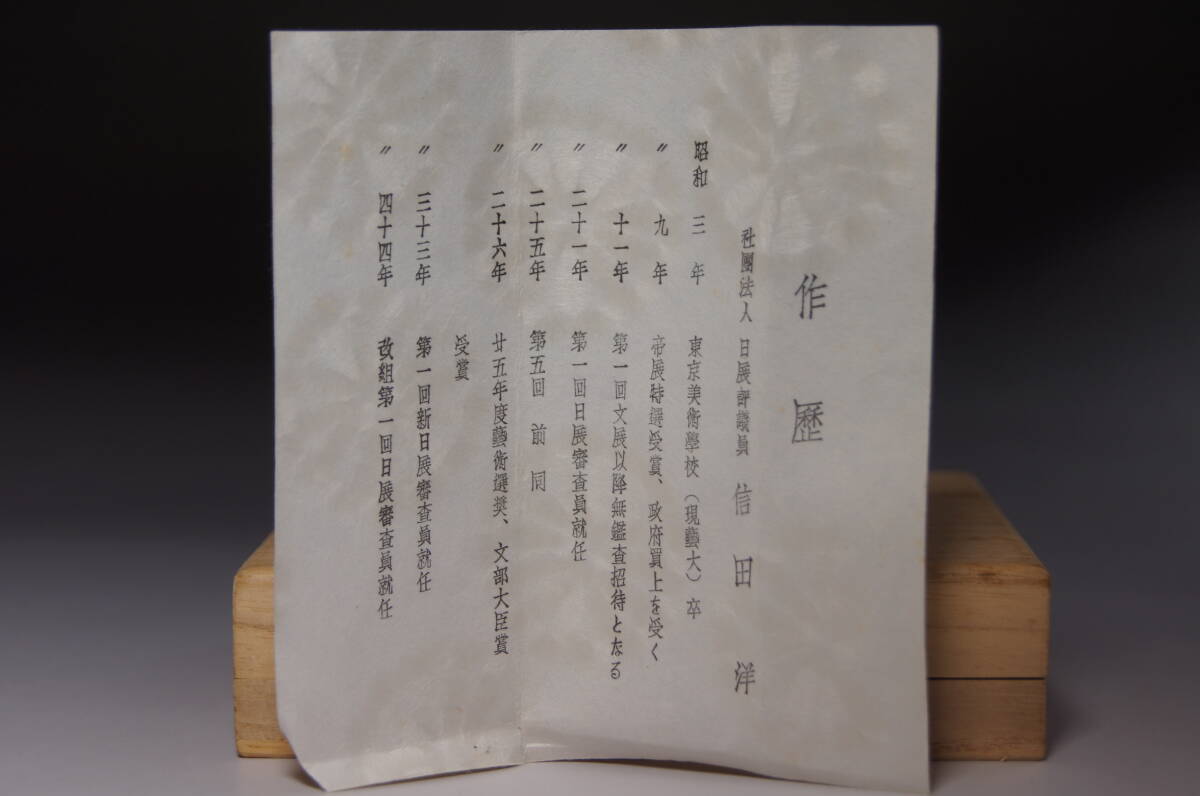 作歷
社團法人 日展評議員 信田洋
昭和 三年 東京美術學校（現藝大）卒
〃 九年 帝展特選受賞、政府買上を受く
〃 十一年 第一回文展以降無鑑査招待となる
〃 二十一年 第一回日展審査員就任
〃 二十五年 第五回 前同
〃 二十六年 廿五年度藝術選奬、文部大臣賞
受賞
〃 三十三年 第一回新日展審査員就任
〃 四十四年 改組第一回日展審査員就任